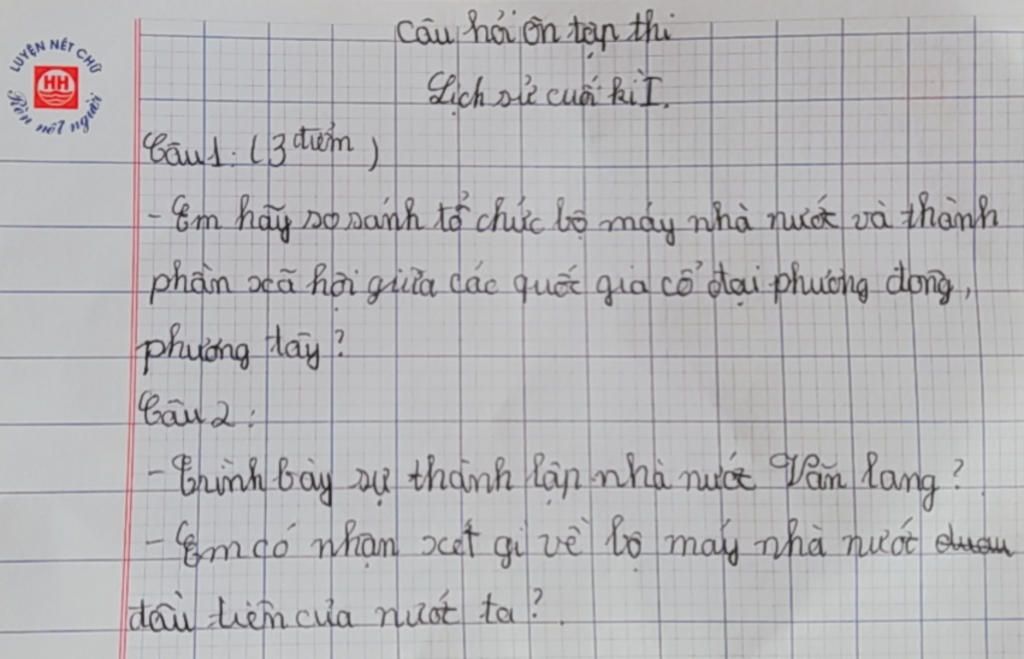 LUYỆN NÉT CHỮ
HH
Rèn nết người
Câu hỏi ôn tập thi
Lịch sử cuối kì I.
Câu 1: (3 điểm)
- Em hãy so sánh tổ chức bộ máy nhà nước và thành
phần xã hội giữa các quốc gia cổ đại phương đông,
phương tây?
Câu 2:
- Trình bày sự thành lập nhà nước Văn lang?
- Em có nhận xét gì về bộ máy nhà nước
đầu tiên của nước ta?